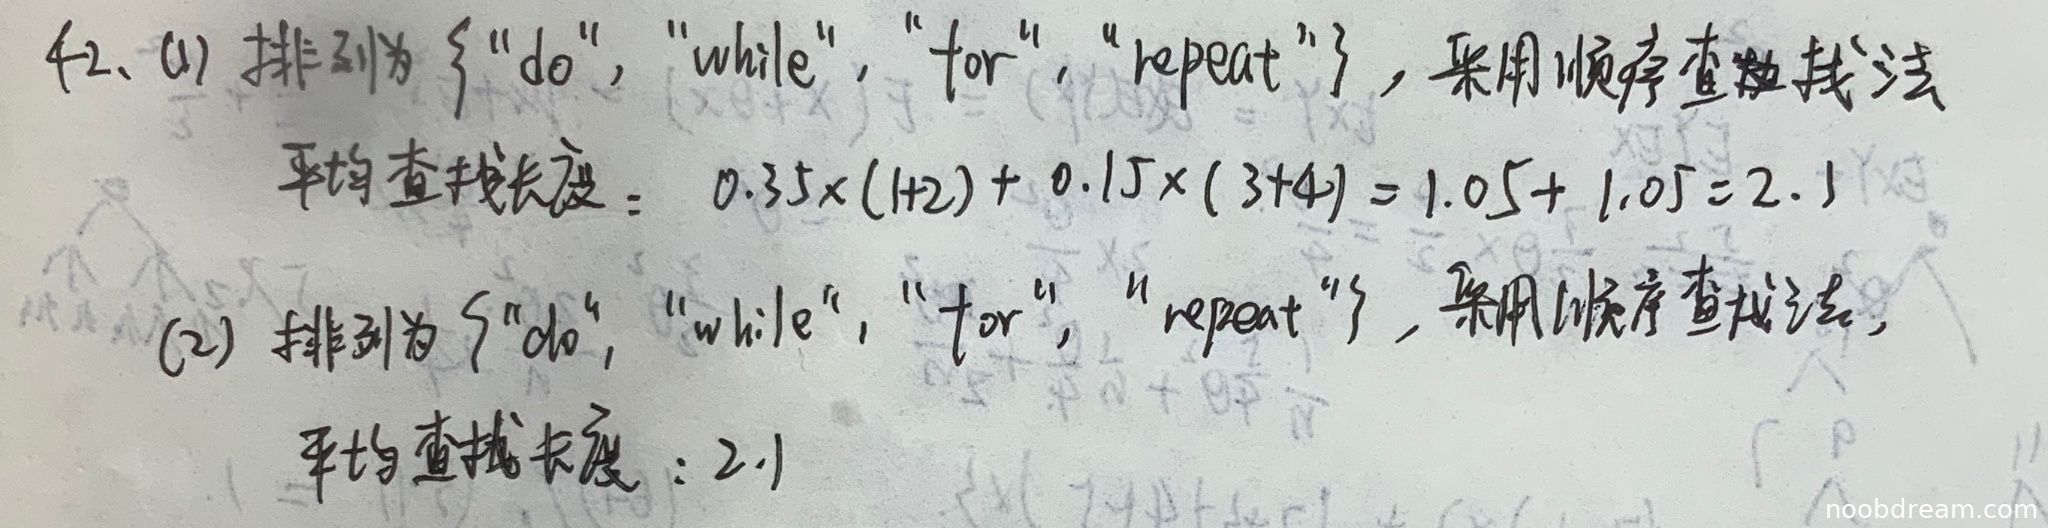 42、(1) 排列为 {"do", "while", "for", "repeat"}, 采用顺序查找法
平均查找长度: 0.35×(1+2)+0.15×(3+4)=1.05+1.05=2.1
(2) 排列为 {"do", "while", "for", "repeat"}, 采用顺序查找法,
平均查找长度:2.1
noobdream.com